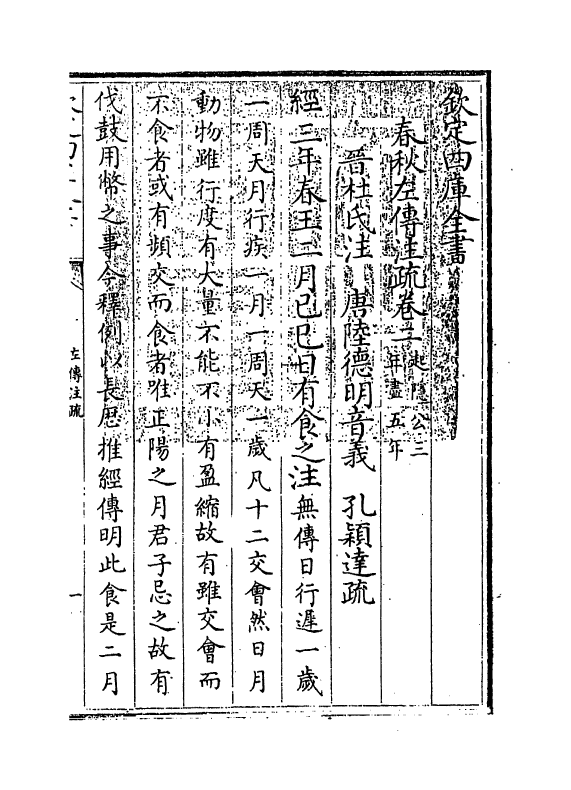 欽定四庫全書
春秋左傳注疏卷二起隱公三年盡五年
晉杜氏注 唐陸德明音義 孔穎達疏
經三年春王二月己巳日有食之注無傳日行遲一歲
一周天月行疾一月一周天一歲凡十二交會然日月
動物雖行度有大量不能不小有盈縮故有雖交會而
不食者或有頻交而食者唯正陽之月君子忌之故有
伐鼓用幣之事今釋例以長歴推經傳明此食是二月
左傳注疏
一